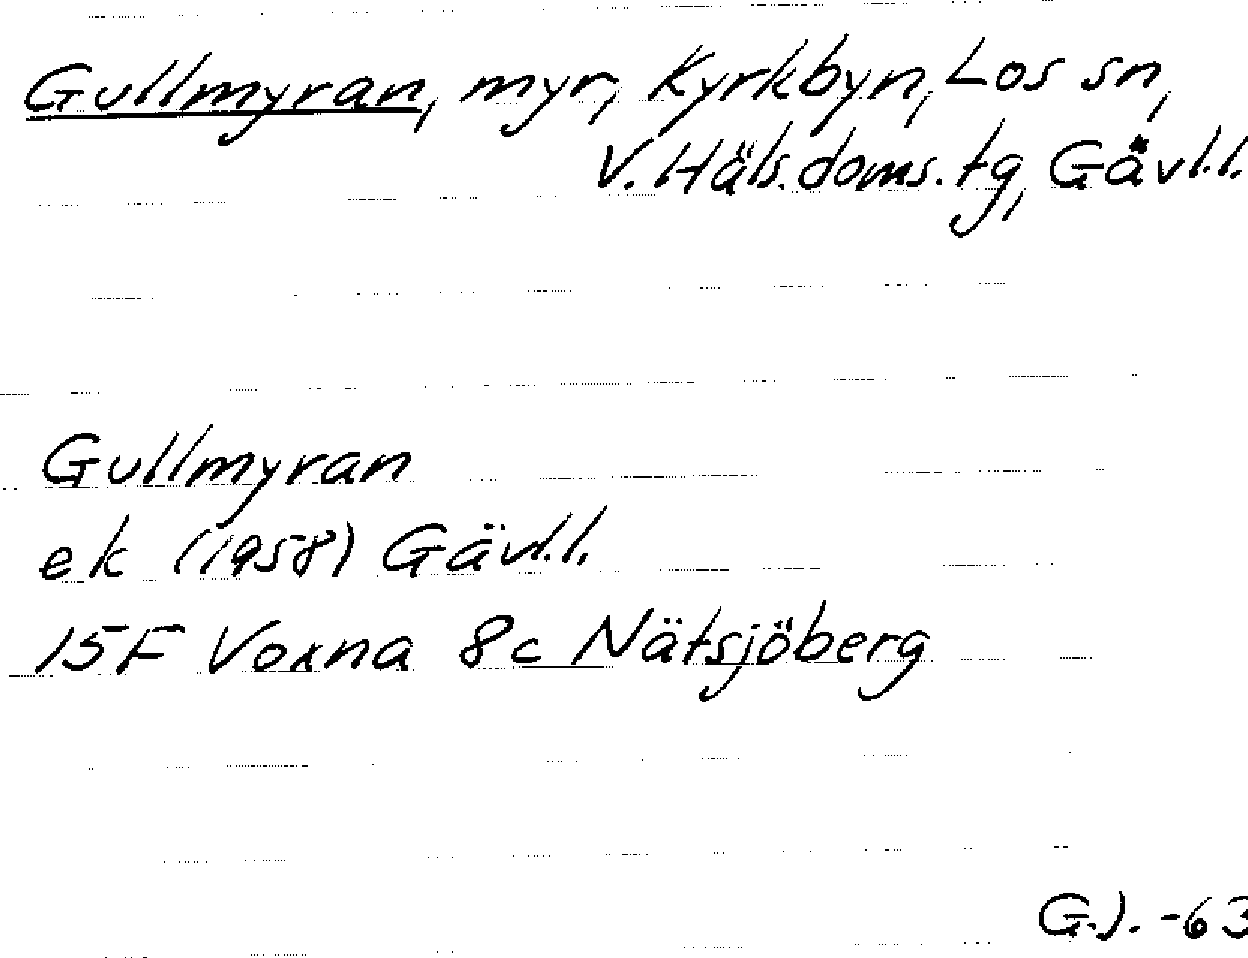 Gullmyran, myr, Kyrkbyn, Los sn,
V. Häls. doms. tg, Gävl.l.
Gullmyran
ek (1958) Gävl.l.
15F Voxna 8c Nätsjöberg
G.J. -63